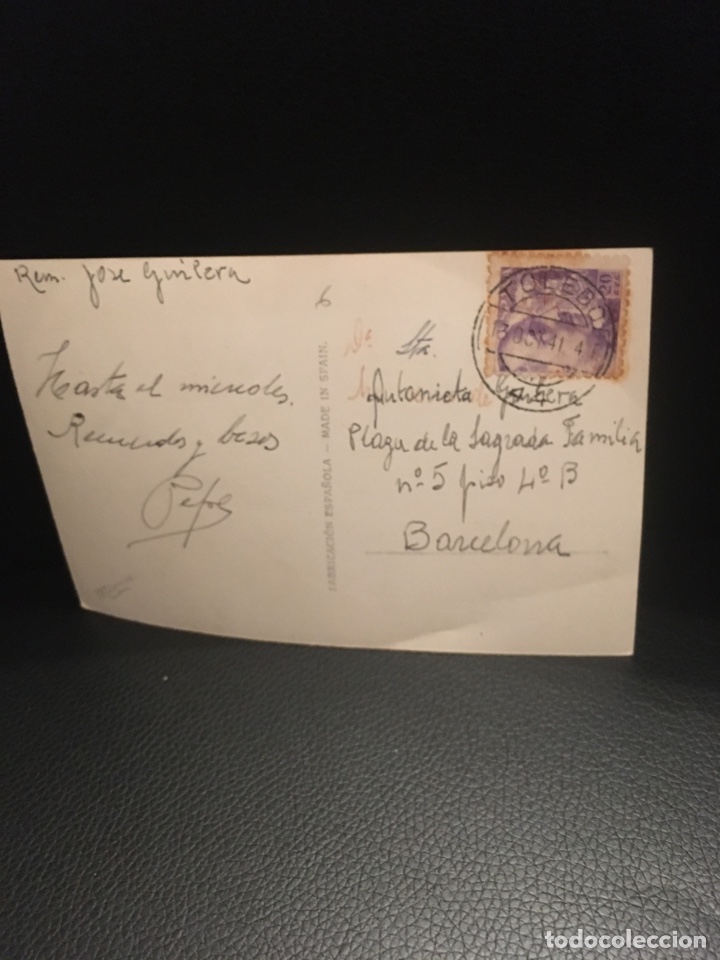 Rem. Jose Guilera
6
Hasta el miercoles.
Recuerdos y besos
Pepe
FABRICACIÓN ESPAÑOLA — MADE IN SPAIN.
TOLEDO
13 OCT 41 4
Dª
Sta.
Antonieta Guilera
Plaza de la Sagrada Familia
nº 5 piso 4º B
Barcelona
todocoleccion
todocoleccion.net